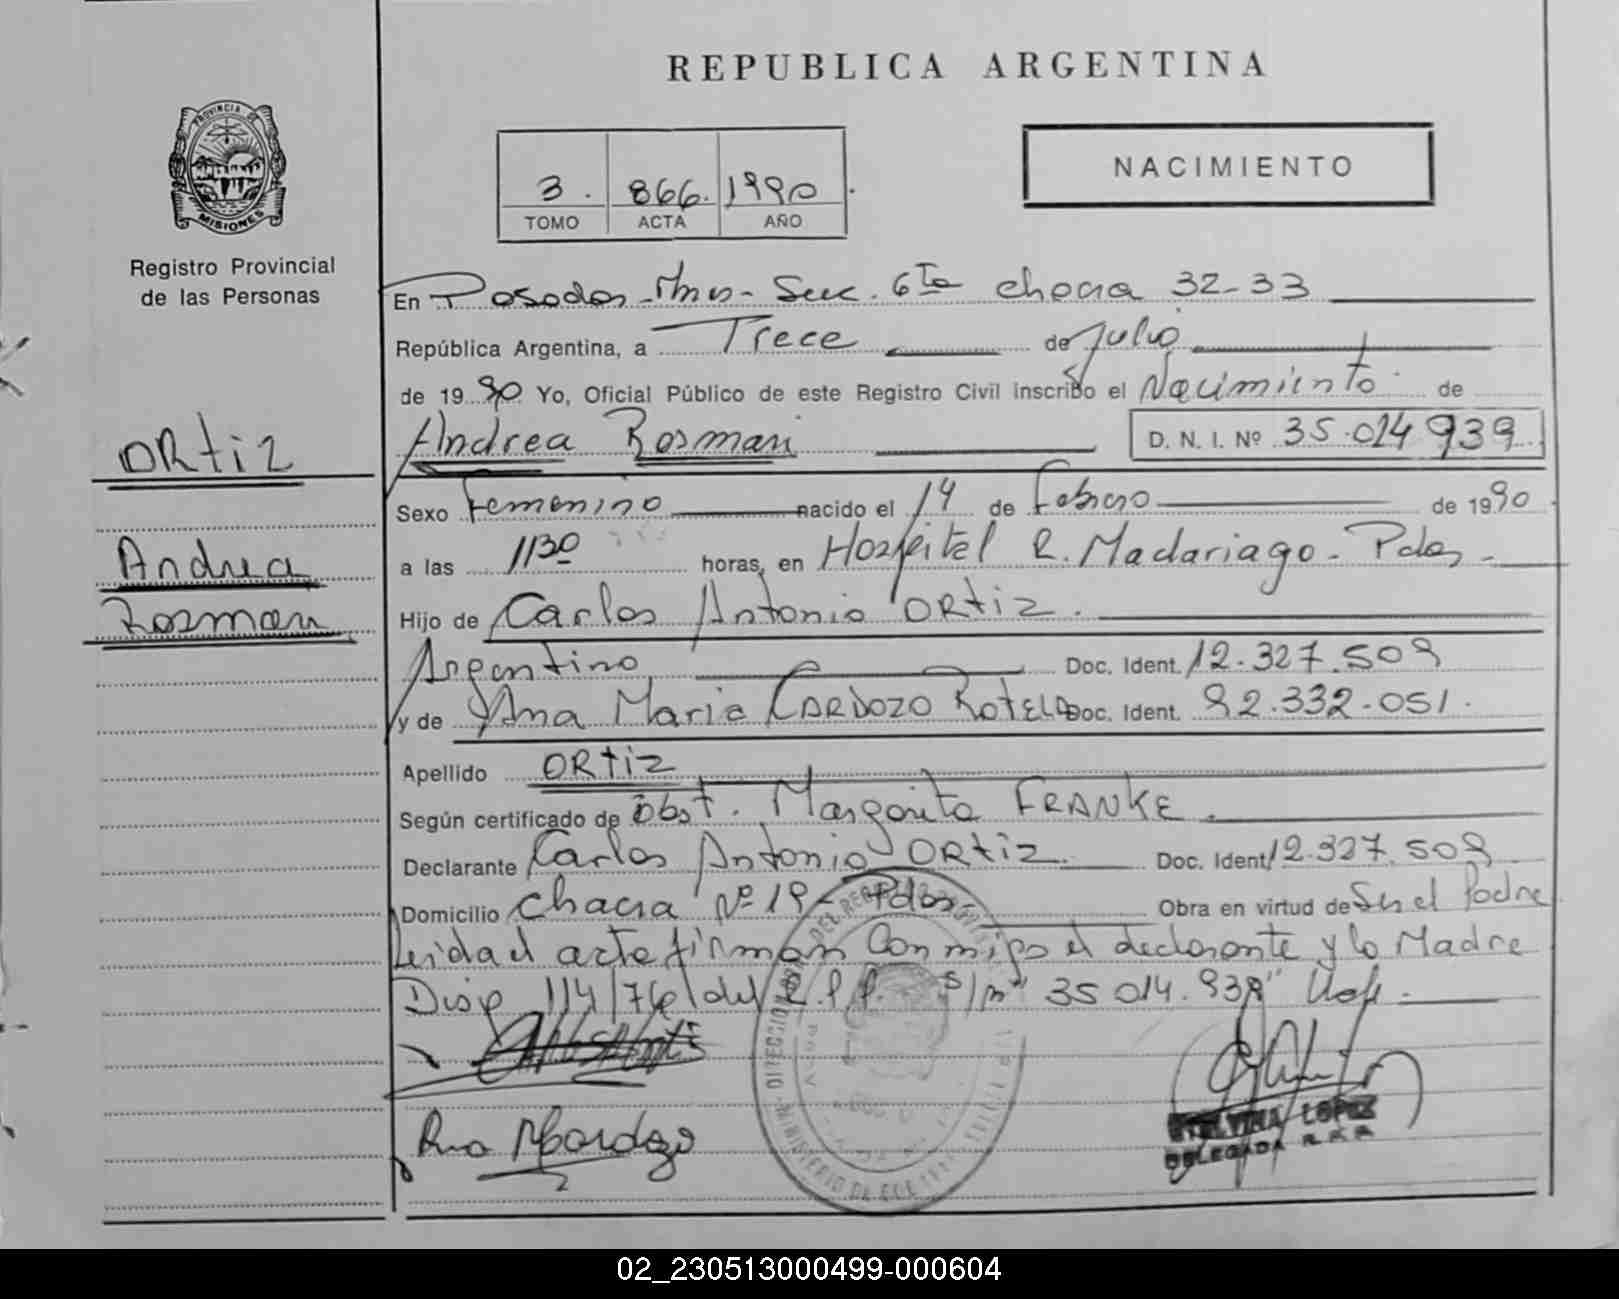 REPUBLICA ARGENTINA
PROVINCIA DE
MISIONES
Registro Provincial
de las Personas
3. 866. 1990
TOMO ACTA AÑO
NACIMIENTO
En Posadas - Mnes - Secc. 6ta chacra 32-33
República Argentina, a Trece de Julio
de 1990 Yo, Oficial Público de este Registro Civil inscribo el Nacimiento de
Andrea Rosmari D. N. I. Nº 35.014939
ORtiz
Andrea
Rosmari
Sexo Femenino nacido el 14 de Febrero de 1990
a las 1130 horas, en Hospital R. Madariaga - Pdas -
Hijo de Carlos Antonio ORtiz.
Argentino Doc. Ident. 12.327.509
y de Ana Maria CARDOZO ROTELA Doc. Ident. 92.332.051.
Apellido ORtiz
Según certificado de Obst. Margarita FRANKE.
Declarante Carlos Antonio ORtiz. Doc. Ident. 12.327.509
Domicilio Chacra Nº 19 - Pdas - Obra en virtud de Ser el Padre
Leida el acta firman Con migo el declarante y la Madre
Disp 114/76 del R.P.P. s/nº 35 014.939"
Ana Cardozo
LOPEZ
DELEGADA
02_230513000499-000604